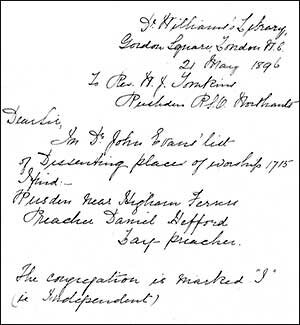 Dr Williams's Library,
Gordon Square, London W.C.
21 May 1896
To Rev. M. J. Tomkins
Rushden R.S.O. Northants
Dear Sir,
In Dr John Evans' list
of Dissenting places of worship 1715
I find:-
Rusden near Higham Ferrers
Preacher Daniel Hefford
Lay preacher.
The congregation is marked "I"
(ie Independent)